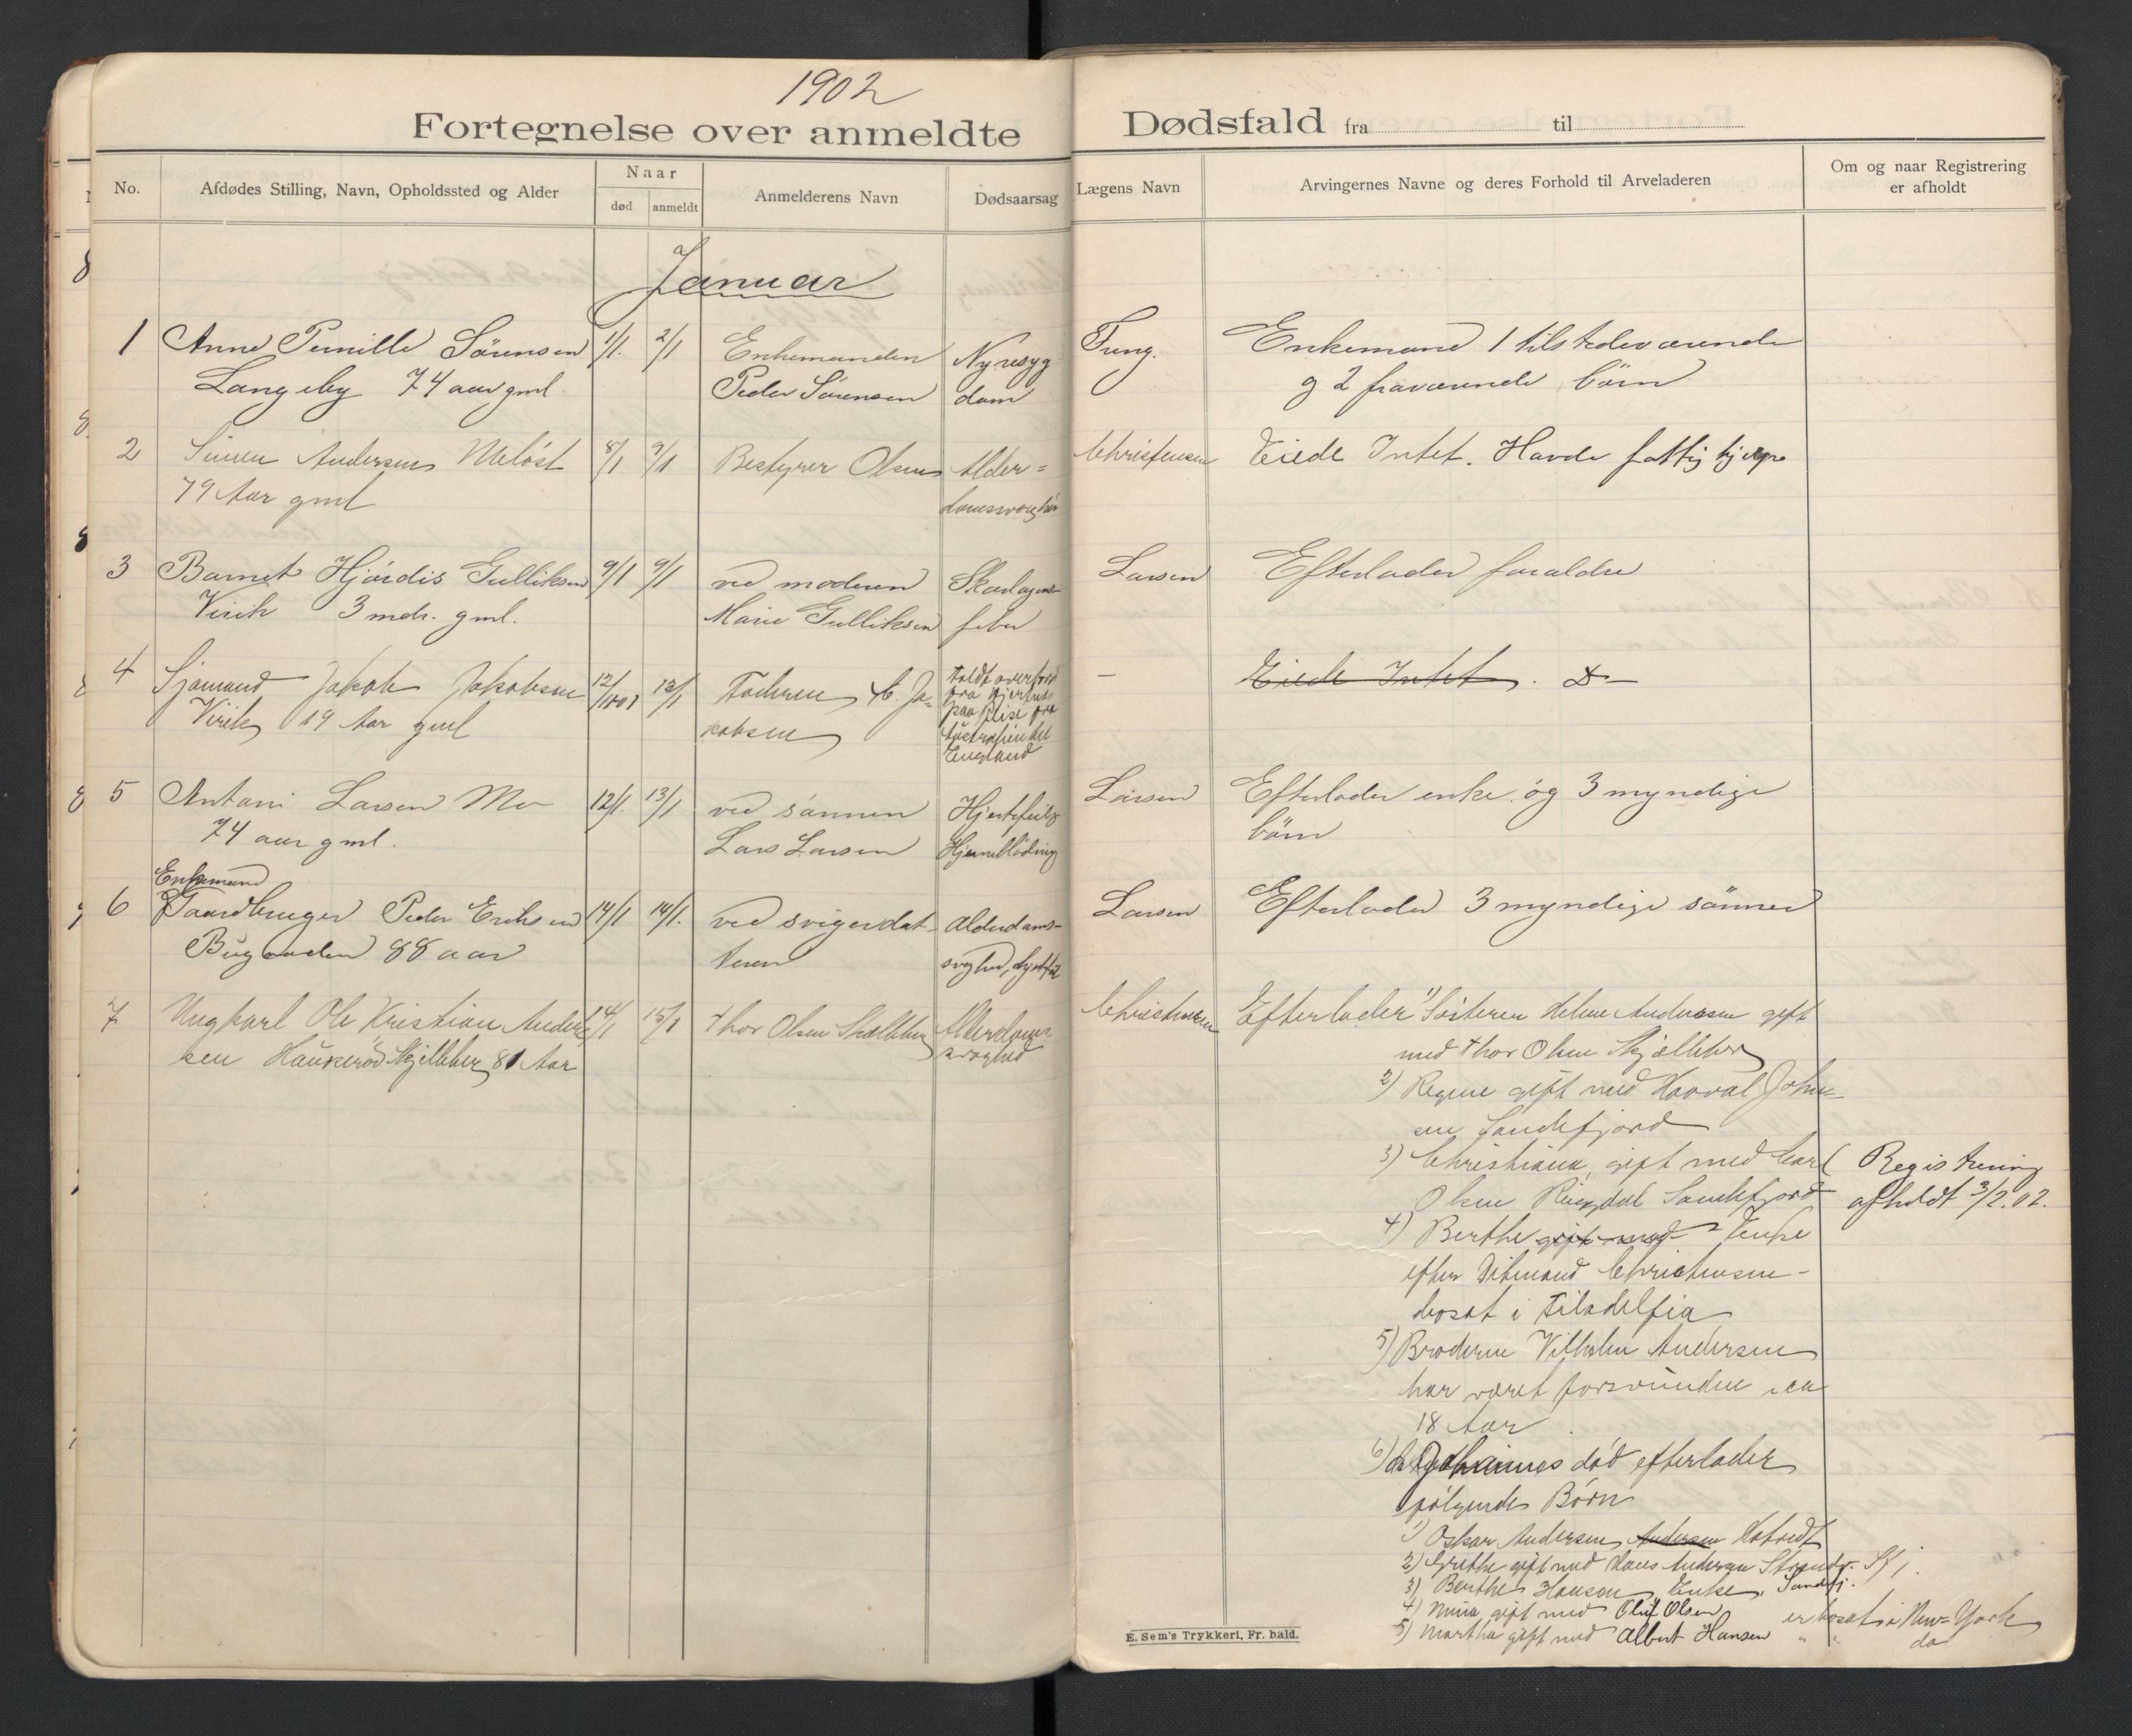 1902
Fortegnelse over anmeldte Dødsfald fra til
No.
Afdødes Stilling, Navn, Opholdssted og Alder
Naar
død
anmeldt
Anmelderens Navn
Dødsaarsag
Lægens Navn
Arvingernes Navne og deres Forhold til Arveladeren
Om og naar Registrering
er afholdt
Januar
1 Anne Pernille Sørensen 1/1. 2/1 Enkemanden Nyresyg Tung. Enkemand 1 tilstedeværende
Langeby 74 aar gml. Peder Sørensen dom og 2 fraværende børn
2 Simen Andersen Meløst 8/1 9/1 Bestyrer Olsen Alder= Christensen Eiede Intet. Havde fattighjelp
79 Aar gml
3 Barnet Hjørdis Gulliksen 9/1 9/1 ved moderen Skarlagens- Larsen Efterlader forældre
Virik 3 mdr. gml. Marie Gulliksen feber
4 Sjømand Jakob Jakobsen 12/1901 12/1 Faderen C. Ja= Faldt overbord - Eiede Intet. D-
Virik 19 Aar gml kobsen fra
paa Reise fra
Australien til
England
5 Antoni Larsen Mo 12/1. 13/1 ved sønnen Hjertefeil, Larsen Efterlader enke og 3 myndige
74 aar gml. Lars Larsen Hjerneblødning børn
Enkemand
6 Gaardbruger Peder Eriksen 14/1 14/1. ved svigerdat- Alderdoms- Larsen Efterlader 3 myndige sønner
Bugaarden 88 aar teren svaghed, hjertefeil
7 Ungkarl Ole Kristian Ander 14/1 15/1 Thor Olsen Alderdoms- Christensen Efterlader 1) Søsteren Helene Andersen gift
sen Haukerød Skjellber 81 Aar svaghed med Thor Olsen Skjællber
2) Regine gift med Haaval John=
sen Sandefjord
3) Christiana, gift med Carl Registrering
Olsen Sandefjord afholdt 3/2.02.
4) Berthe gift med Enke
efter Ditmand Christensen-
bosat i Filadelfia
5) Broderen Vilhelm Andersen
har været forsvunden i ca
18 Aar
6) Johannes død efterlader
følgende Børn
1) Oskar Andersen Andersen
2) Grethe gift med Hans Andersen
3) Berthe Hansen Enke, Sandefj.
4) Mina gift med Oluf Olsen er bosat i New=York
5) Martha gift med Albert Hansen " " do
E. Sem's Trykkeri, Fr. hald.